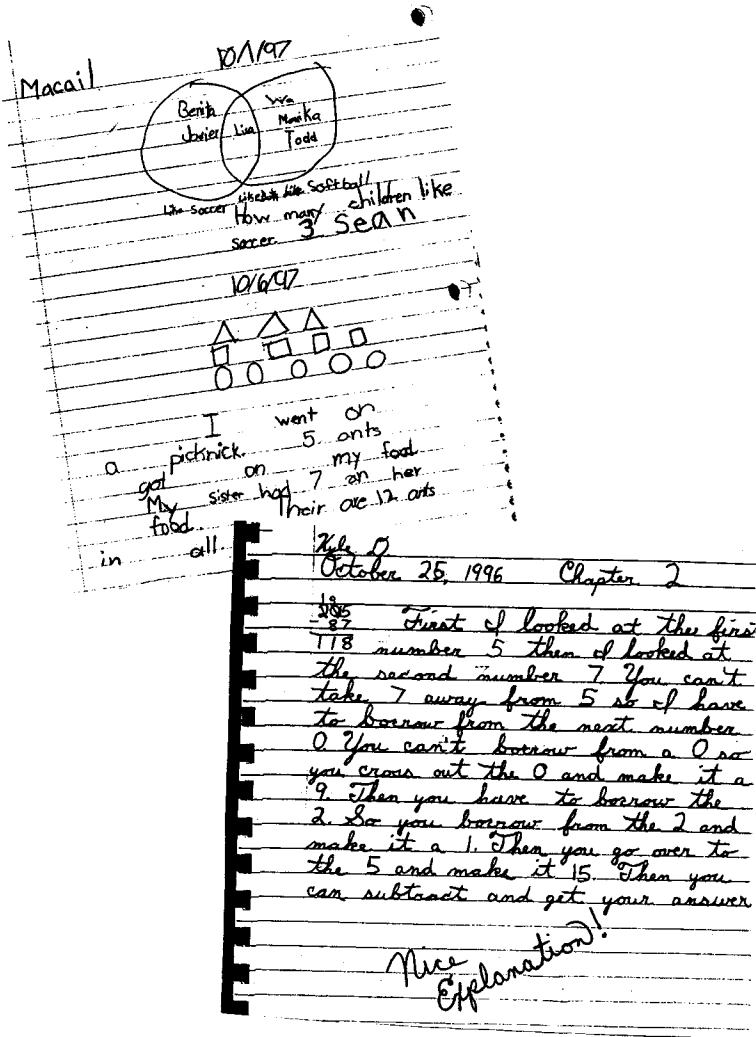 Macail
10/1/97
Benita
Javier
Lisa
Marika
Todd
Like Soccer
Like Softball
How many children like
soccer 3 Sean
10/6/97
I went on
a picknick. 5 ants
got on my food
My sister had 7 an her
food. Their are 12 ants
in all.
Kyle D
October 25, 1996 Chapter 2
205
- 87
118
First I looked at the first
number 5 then I looked at
the second number 7. You can't
take 7 away from 5 so I have
to borrow from the next number
0. You can't borrow from a 0 so
you cross out the 0 and make it a
9. Then you have to borrow the
2. So you borrow from the 2 and
make it a 1. Then you go over to
the 5 and make it 15. Then you
can subtract and get your answer
Nice
Explanation!